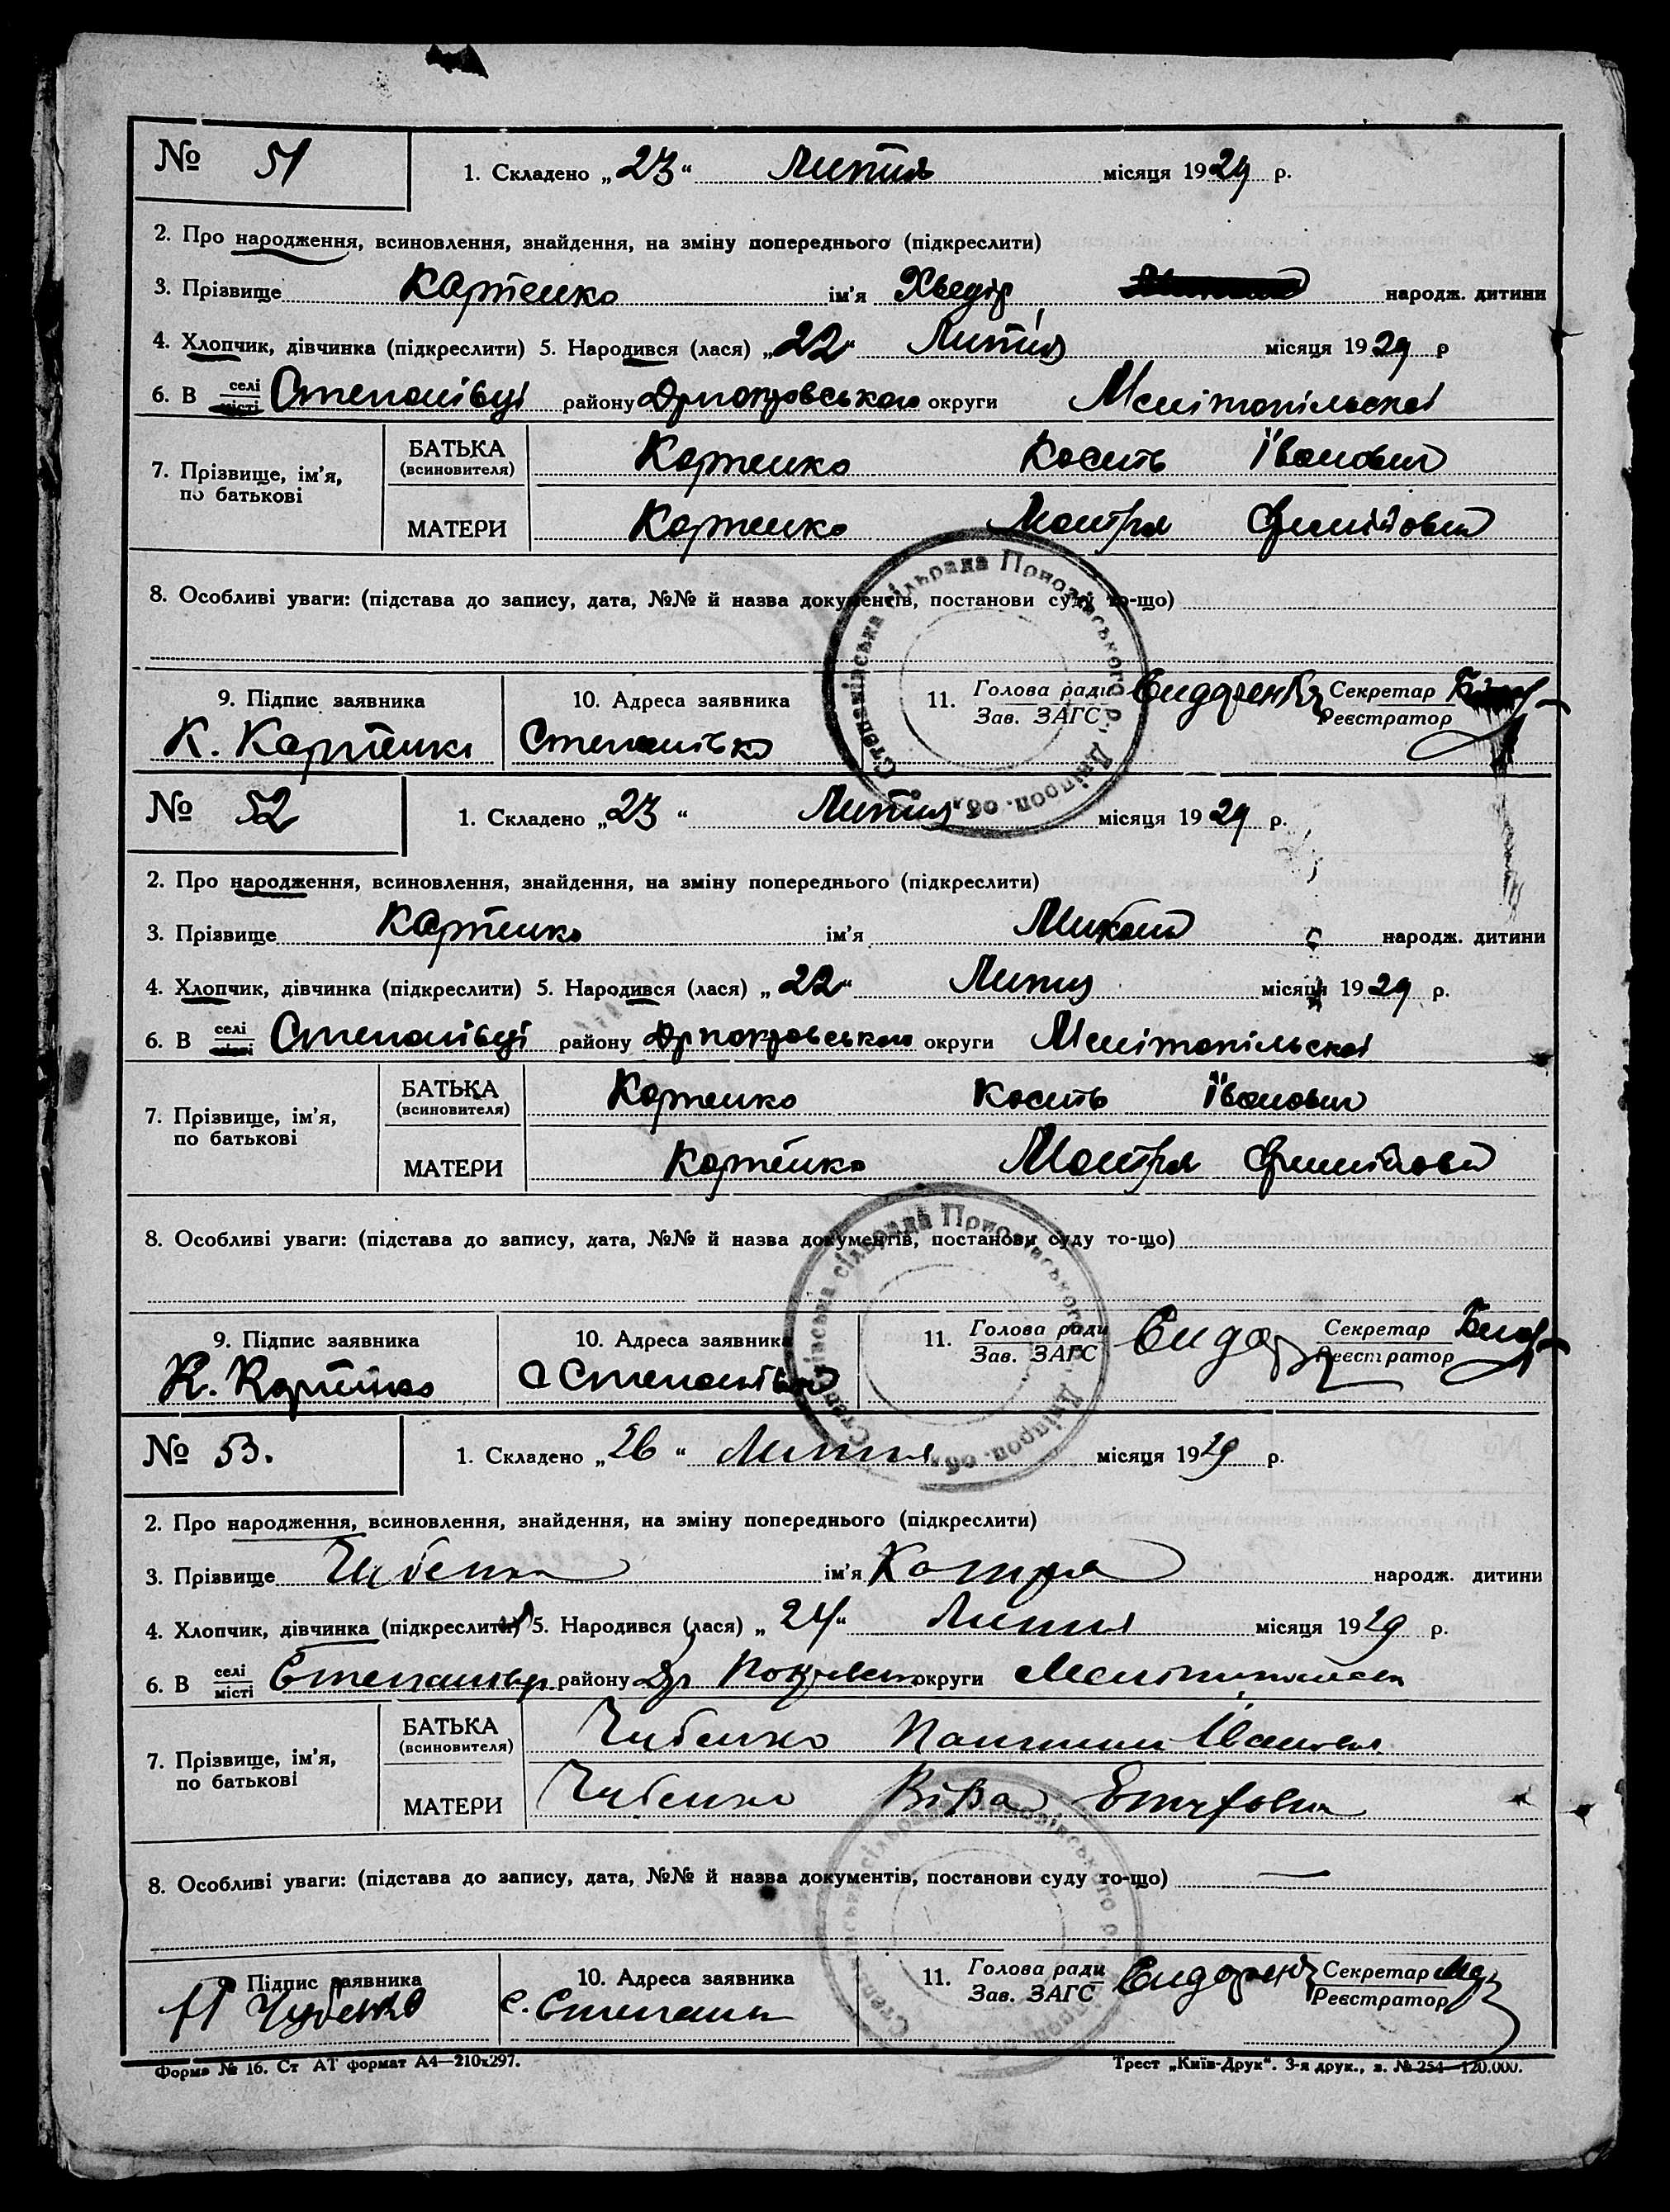 № 51
1. Складено „23“ Липня місяця 1929 р.
2. Про народження, всиновлення, знайдення, на зміну попереднього (підкреслити)
3. Прізвище Картенко ім'я Хведір народж. дитини
4. Хлопчик, дівчинка (підкреслити) 5. Народився (лася) „22“ Липня місяця 1929 р
6. В селі місті Степанівці району Дрпокровського округи Мелітопільської
7. Прізвище, ім'я, по батькові
БАТЬКА (всиновителя) Картенко Кость Іванович
МАТЕРИ Картенко Мотря
8. Особливі уваги: (підстава до запису, дата, №№ й назва документів, постанови суду то-що)
Степанівська сільрада Приазовського р., Дніпроп. обл.
9. Підпис заявника 10. Адреса заявника 11. Голова ради Зав. ЗАГС Сидоренко Секретар Реєстратор
К. Картенко Степанівка
№ 52
1. Складено „23“ Липня місяця 1929 р.
2. Про народження, всиновлення, знайдення, на зміну попереднього (підкреслити)
3. Прізвище Картенко ім'я Микола народж. дитини
4. Хлопчик, дівчинка (підкреслити) 5. Народився (лася) „22“ Липня місяця 1929 р.
6. В селі місті Степанівці району Дрпокровського округи Мелітопільської
7. Прізвище, ім'я, по батькові
БАТЬКА (всиновителя) Картенко Кость Іванович
МАТЕРИ Картенко Мотря
8. Особливі уваги: (підстава до запису, дата, №№ й назва документів, постанови суду то-що)
Степанівська сільрада Приазовського р., Дніпроп. обл.
9. Підпис заявника 10. Адреса заявника 11. Голова ради Зав. ЗАГС Секретар Реєстратор
К. Картенко с Степанівка
№ 53.
1. Складено „26“ Липня місяця 1929 р.
2. Про народження, всиновлення, знайдення, на зміну попереднього (підкреслити)
3. Прізвище Чубенко ім'я Катря народж. дитини
4. Хлопчик, дівчинка (підкреслити) 5. Народився (лася) „24“ Липня місяця 1929 р.
6. В селі місті Степанівці району Др Покровськ округи
7. Прізвище, ім'я, по батькові
БАТЬКА (всиновителя) Чубенко Іванович
МАТЕРИ Чубенко
8. Особливі уваги: (підстава до запису, дата, №№ й назва документів, постанови суду то-що) —
9. Підпис заявника 10. Адреса заявника 11. Голова ради Зав. ЗАГС Сидоренко Секретар Реєстратор
П Чубенко с. Степанівка
Форма № 16. Ст АТ формат А4—210х297.
Трест „Київ-Друк“. 3-я друк., з. № 254—120.000.